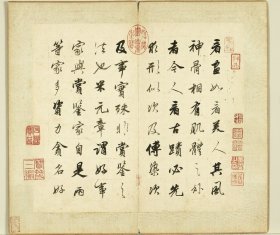 看畫如看美人其風
神骨相有肌體之外
者今人看古蹟必先
求形似次及傅染次
及事實殊非賞鑒之
法也米元章謂好事
家與賞鑒家自是兩
等家多資力貪名好